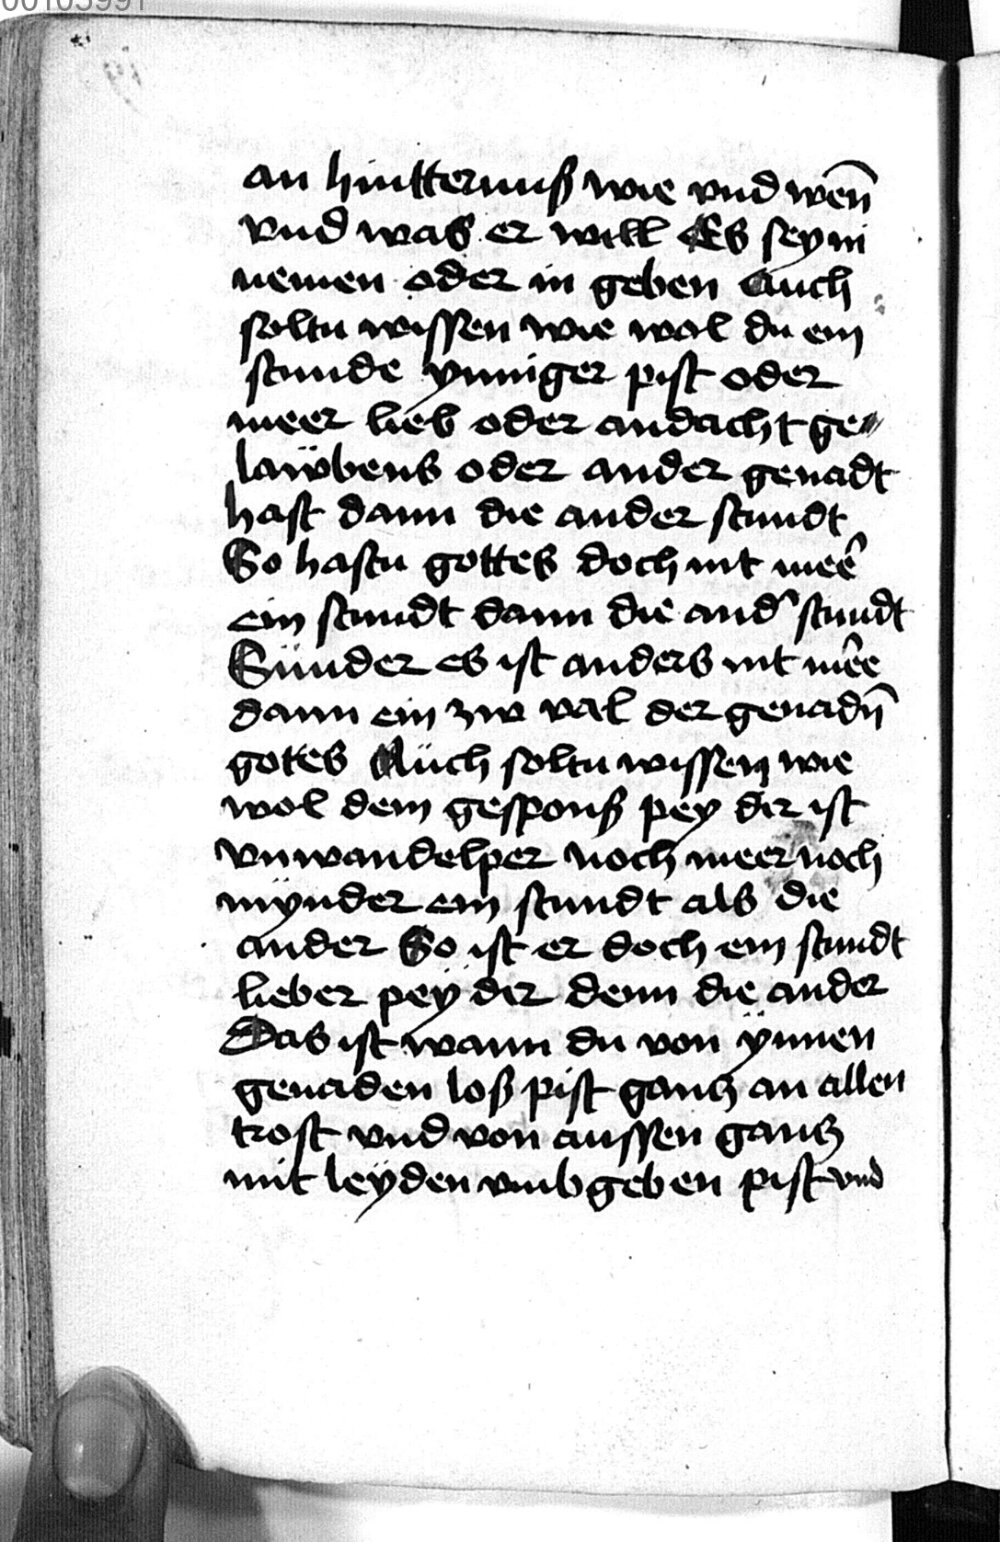 00105991
an hintternuß wie vnd wen̄
vnd was er will Es sey in
nemen oder in geben Auch
soltu wissen wie wol du ein
stunde ynniger pist oder
meer lieb oder andacht ge⸗
laẅbens oder ander genadt
hast dann die ander stundt
So hastu gottes doch nit meê
ein stundt dann die and᾽ stundt
Sünder es ist anders nit mêe
dann ein zw val der genadn̄
gotes Aüch soltu wissen wie
wol dem gesponß pey dir ist
vnwandelper noch meer noch
mÿnder ein stundt als die
ander So ist er doch ein stundt
lieber peÿ dir denn die ander
Das ist wann du von ÿnnen
genaden loß pist gantz an allen
trost vnd von aussen gantz
mit leÿden vmbgeben pist vnd